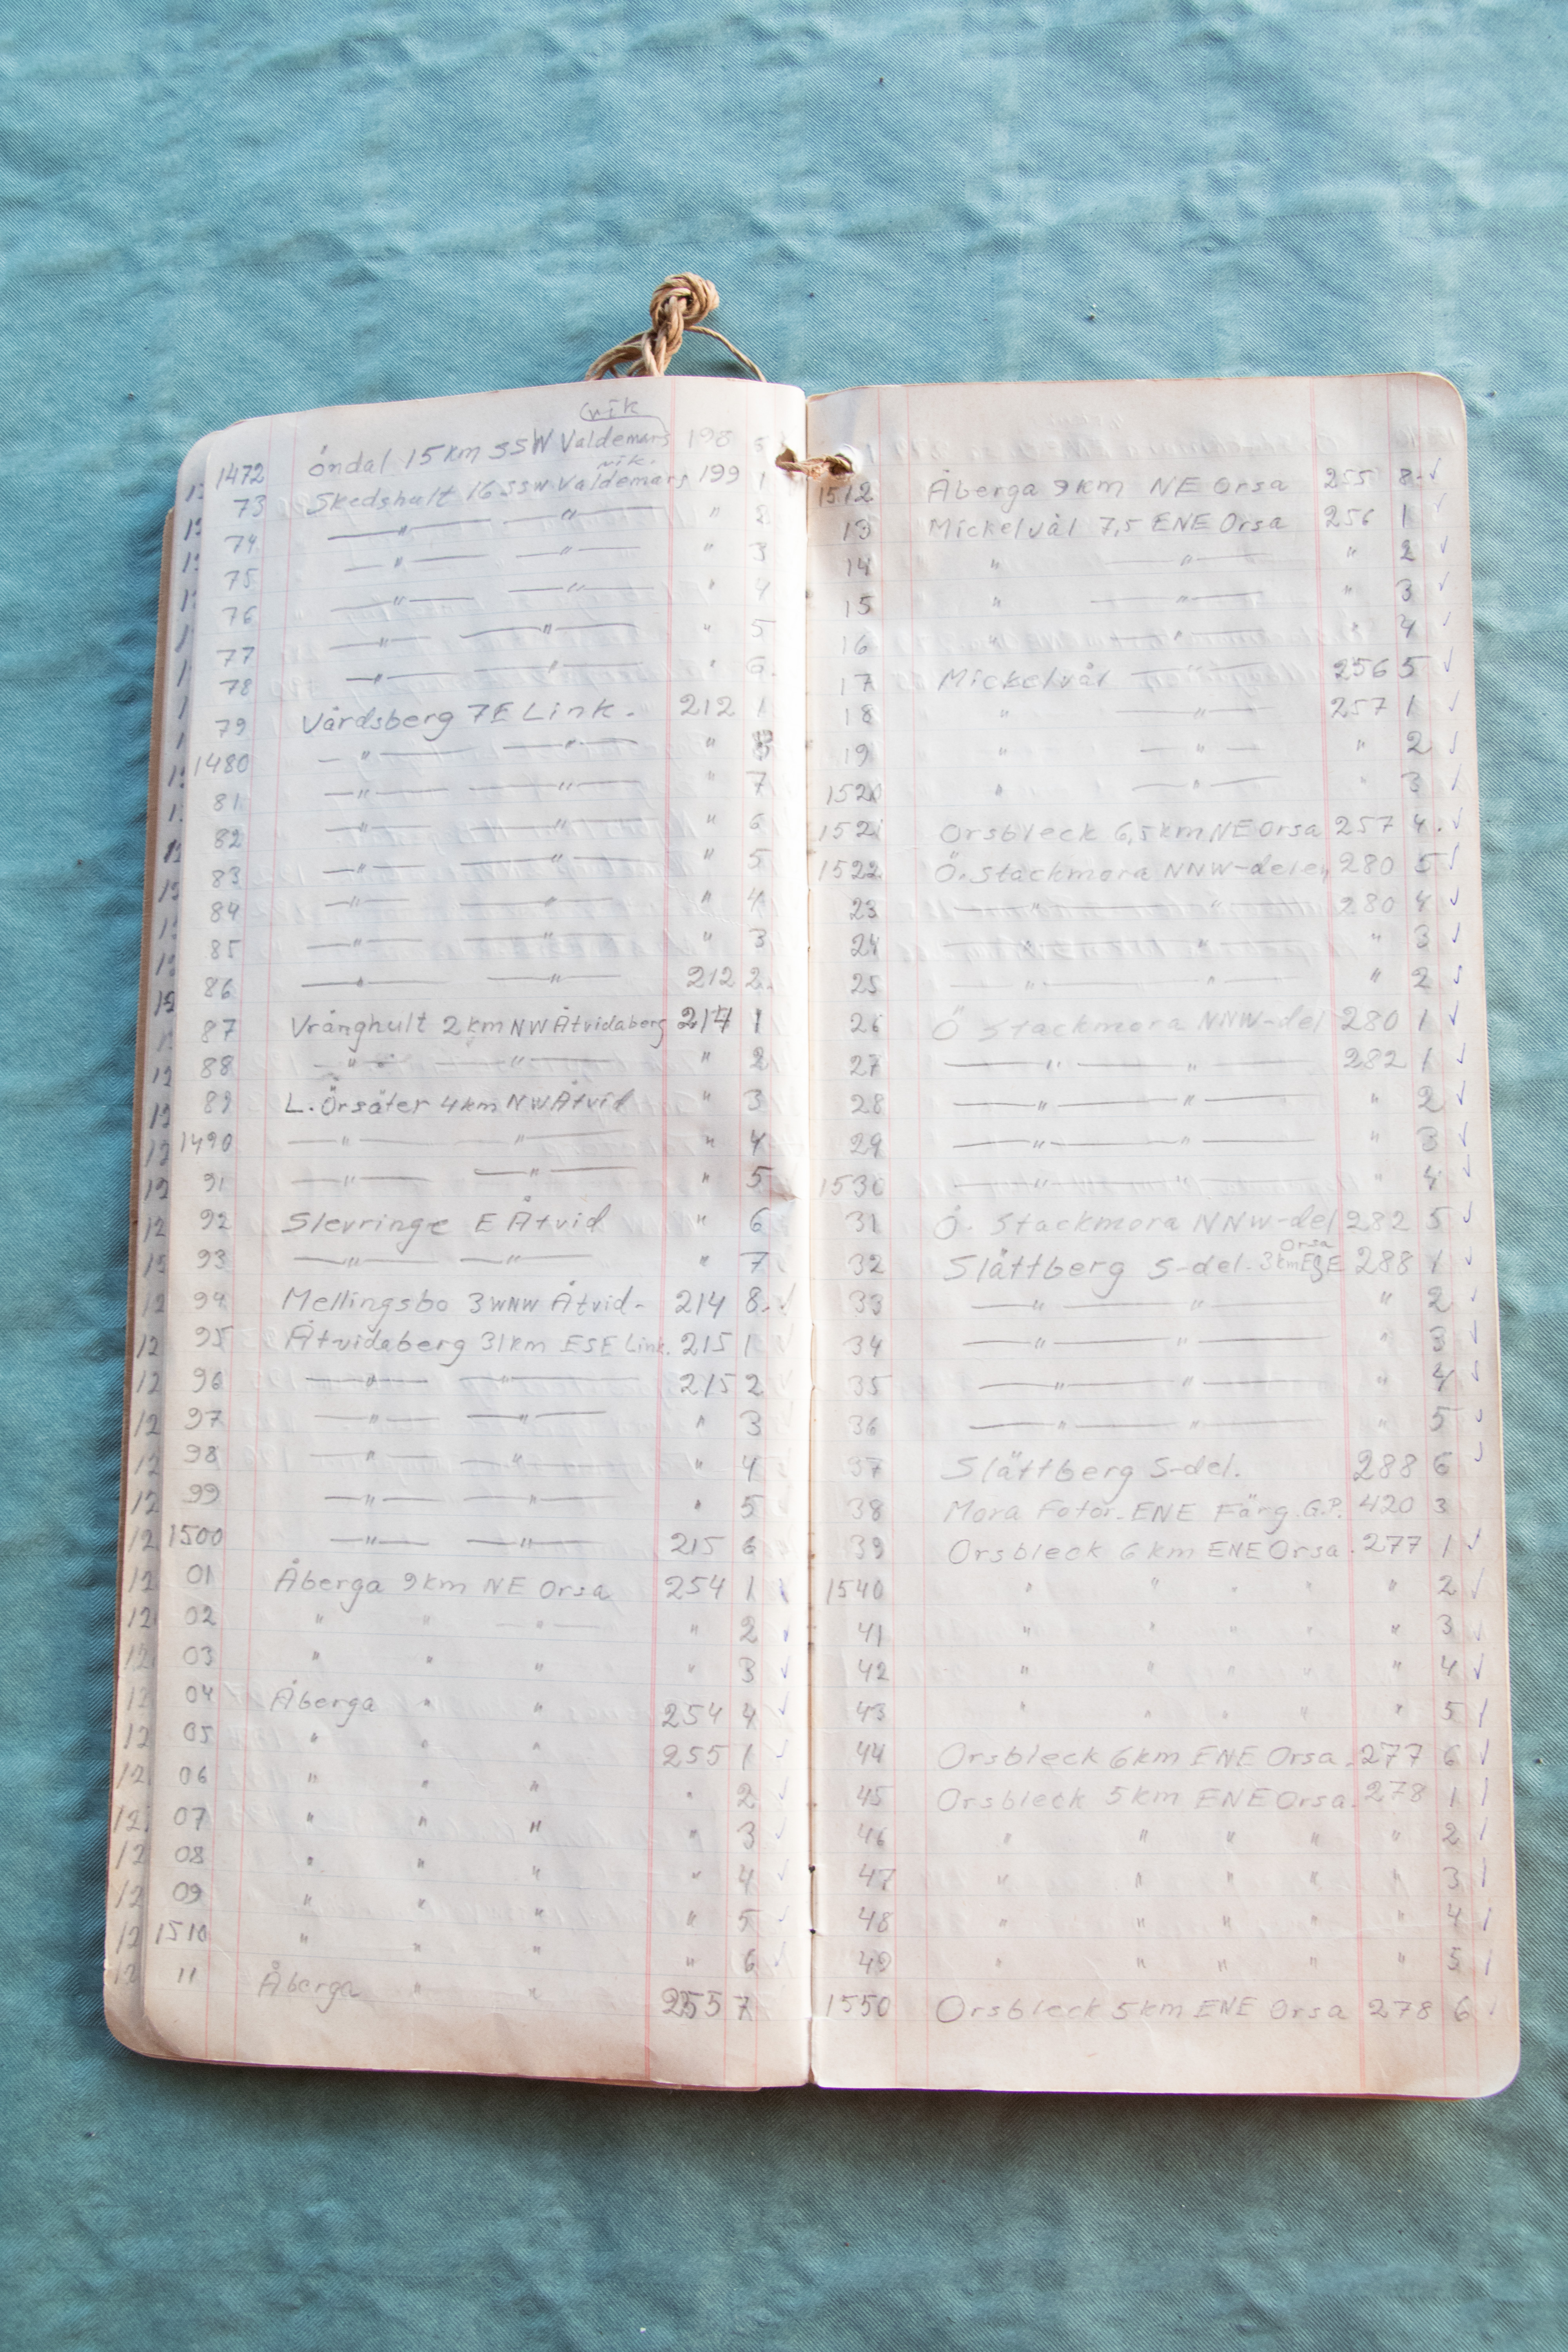 vik
1472 öndal 15 km SSW Valdemars 198 6
vik.
73 Skedshult 16 SSW Valdemars 199 1
74 — " — — " — " 2
75 — " — — " — " 3
76 — " — — " — " 4
77 — " — — " — " 5
78 — " — — " — " 6.
79 Vårdsberg 7 E Link. 212 1
1480 — " — — " — "
81 — " — — " — " 7
82 — " — — " — " 6
83 — " — — " — " 5
84 — " — — " — " 4
85 — " — — " — " 3
86 — " — — " — 212 2.
87 Vrånghult 2 km NW Åtvidaberg 214 1
88 — " — — " — " 2
89 L. Örsäter 4 km NW Åtvid " 3
1490 — " — — " — " 4
91 — " — — " — " 5
92 Slevringe E Åtvid " 6
93 — " — — " — " 7
94 Mellingsbo 3 WNW Åtvid- 214 8. ✓
95 Åtvidaberg 31 km ESE Link. 215 1
96 — " — — " — 215 2
97 — " — — " — " 3
98 — " — — " — " 4
99 — " — — " — " 5
1500 — " — — " — 215 6
01 Åberga 9 km NE Orsa 254 1 ✓
02 " " — " — " 2 ✓
03 " " " " 3 ✓
04 Åberga " " 254 4 ✓
05 " " " 255 1 ✓
06 " " " " 2 ✓
07 " " " " 3 ✓
08 " " " " 4 ✓
09 " " " " 5 ✓
1510 " " " " 6 ✓
11 Åberga " " 255 7
1512 Åberga 9 km NE Orsa 255 8. ✓
13 Mickelvål 7,5 ENE Orsa 256 1 ✓
14 " — " — " 2 ✓
15 " — " — " 3 ✓
16 " — " — " 4 ✓
17 Mickelvål — " — 256 5 ✓
18 " — " — 257 1 ✓
19 " — " — " 2 ✓
1520 " — " — " 3 ✓
1521 Orsbleck 6,5 km NE Orsa 257 4. ✓
1522 Ö. Stackmora NNW-delen 280 5 ✓
23 — " — " — 280 4 ✓
24 — " — " — " 3 ✓
25 — " — " — " 2 ✓
26 Ö Stackmora NNW-del 280 1 ✓
27 — " — " — 282 1 ✓
28 — " — " — " 2 ✓
29 — " — " — " 3 ✓
1530 — " — " — " 4 ✓
31 Ö. Stackmora NNW-del 282 5 ✓
Orsa
32 Slättberg S-del. 3 km ESE 288 1 ✓
33 — " — " — " 2 ✓
34 — " — " — " 3 ✓
35 — " — " — " 4 ✓
36 — " — " — " 5 ✓
37 Slättberg S-del. 288 6 ✓
38 Mora Fotor. ENE Färg. G.P. 420 3
39 Orsbleck 6 km ENE Orsa. 277 1 ✓
1540 " " " " " 2 ✓
41 " " " " " 3 ✓
42 " " " " " 4 ✓
43 " " " " " 5 ✓
44 Orsbleck 6 km ENE Orsa. 277 6 ✓
45 Orsbleck 5 km ENE Orsa. 278 1 ✓
46 " " " " " 2 ✓
47 " " " " " 3 ✓
48 " " " " " 4 ✓
49 " " " " " 5 ✓
1550 Orsbleck 5 km ENE Orsa 278 6 ✓